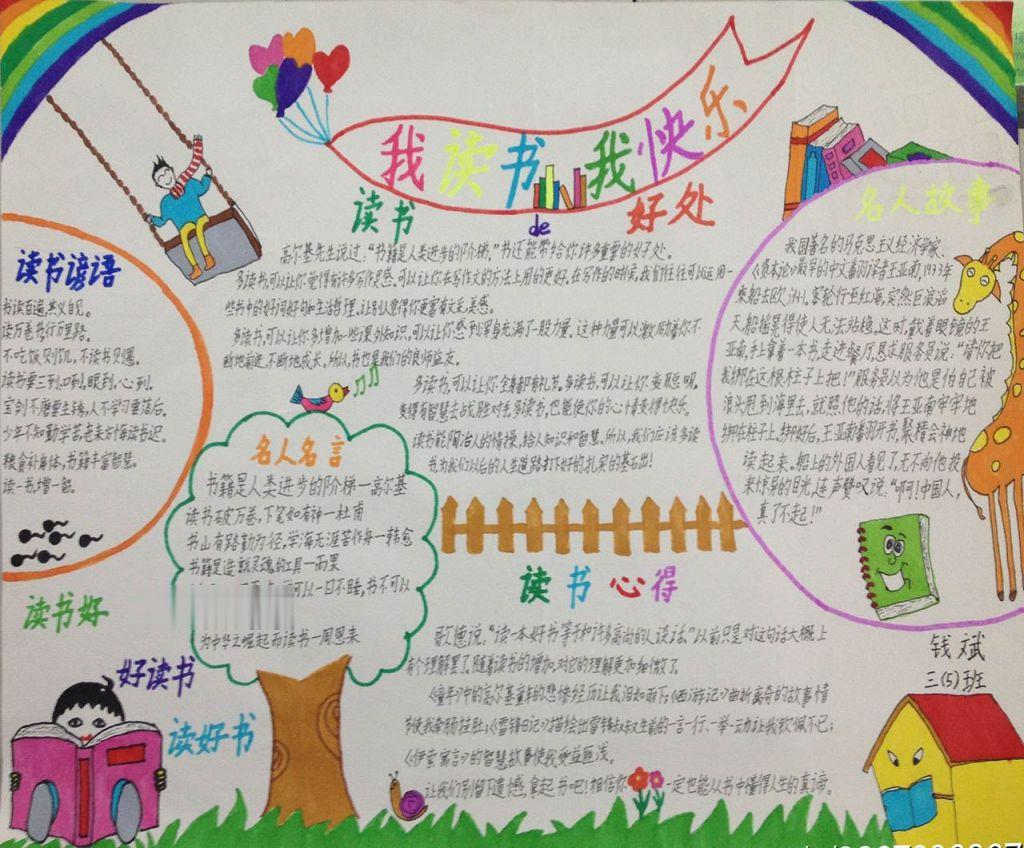 我读书我快乐
读书de好处
高尔基先生说过，“书籍是人类进步的阶梯。”书还能带给你许多重要的好处。
多读书，可以让你觉得有许多写作灵感。可以让你在写作文的方法上用的更好。在写作的时候，我们往往可以运用一
些书中的好词好句和生活哲理。让别人觉得你更富有文采，美感。
多读书，可以让你多增加一些课外知识，可以让你感到浑身充满了一股力量。这种力量可以激励着你不
断地前进，不断地成长。所以书也是我们的良师益友。
多读书，可以让你全身都有礼节。多读书，可以让你变聪明，
变得有智慧去战胜对手多读书，也能使你的心情变得快乐。
读书能陶冶人的情操，给人知识和智慧。所以，我们应该多读
书，为我们以后的人生道路打下好的、扎实的基石出！
读书谚语
书读百遍，其义自见。
读万卷书，行万里路。
不吃饭则饥，不读书则愚。
读书要三到，口到，眼到，心到。
宝剑不磨要生锈，人不学习要落后。
少年不知勤学苦，老来方悔读书迟。
粮食补身体，书籍丰富智慧。
读一书，增一智。
名人故事
我国著名的马克思主义经济学家、
《资本论》最早的中文翻译者王亚南，1933年
乘船去欧洲。客轮行至红海，突然巨浪滔
天，船摇晃得使人无法站稳。这时，戴着眼镜的王
亚南，手上拿着一本书走进餐厅恳求服务员说：“请你把
我绑在这根柱子上吧！”服务员以为他是怕自己被
浪头甩到海里去，就照他的话，将王亚南牢牢地
绑在柱子上。绑好后，王亚南翻开书，聚精会神地
读起来。船上的外国人看见了，无不向他投
来惊异的目光，连声赞叹说：“啊！中国人，
真了不起！”
名人名言
书籍是人类进步的阶梯—高尔基
读书破万卷，下笔如有神—杜甫
书山有路勤为径，学海无涯苦作舟—韩愈
书籍是造就灵魂的工具—雨果
可以一日不睡，书不可以
为中华之崛起而读书—周恩来
读书心得
歌德说，“读一本好书，等于和许多高尚的人谈话。”以前只是对这句话大概上
有个理解罢了，随着读书的增加，对它的理解更加细微了。
《童年》中的高尔基童年的悲惨经历让我泪如雨下；《西游记》曲折离奇的故事情
节使我荡肠挂肚；《雷锋日记》描绘出雷锋叔叔生前的一言一行、一举一动让我钦佩不已；
《伊索寓言》的智慧故事使我受益匪浅。
让我们别留下遗憾，拿起书吧！相信你一定也能从书中懂得人生的真谛。
读书好
好读书
读好书
钱斌
三（5）班